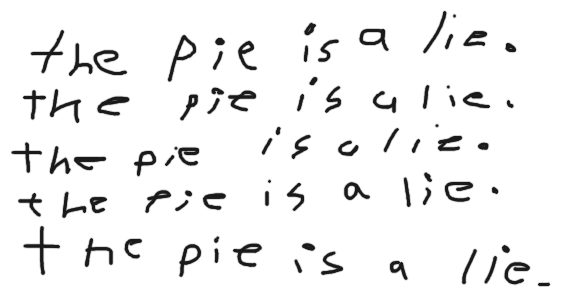 the pie is a lie.
the pie is a lie.
the pie is a lie.
the pie is a lie.
the pie is a lie.